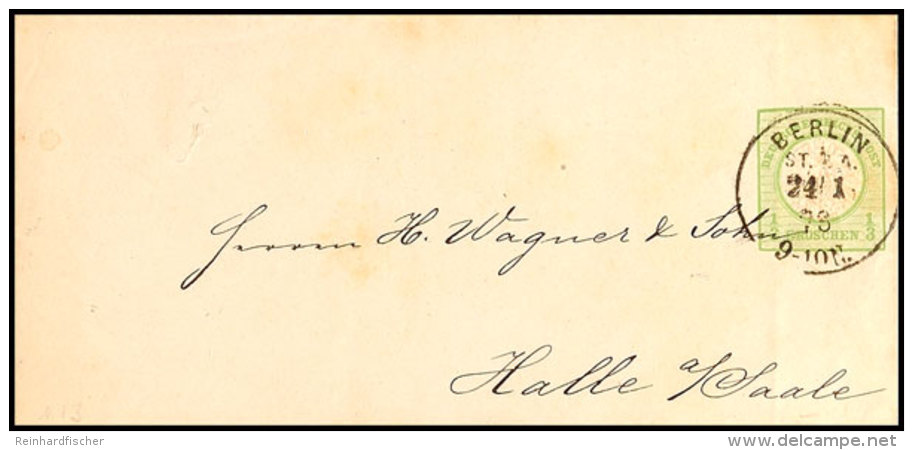 BERLIN
24 1
9-10N.
1/3 1/3
GROSCHEN
Herren H. Wagner & Sohn
Halle a/Saale
Reinhardfischer
www.delcampe.net